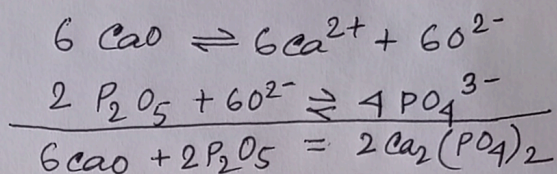 6 CaO ⇌ 6Ca²⁺ + 6O²⁻
2 P₂O₅ + 6O²⁻ ⇌ 4 PO₄³⁻
6CaO + 2P₂O₅ = 2Ca₂(PO₄)₂